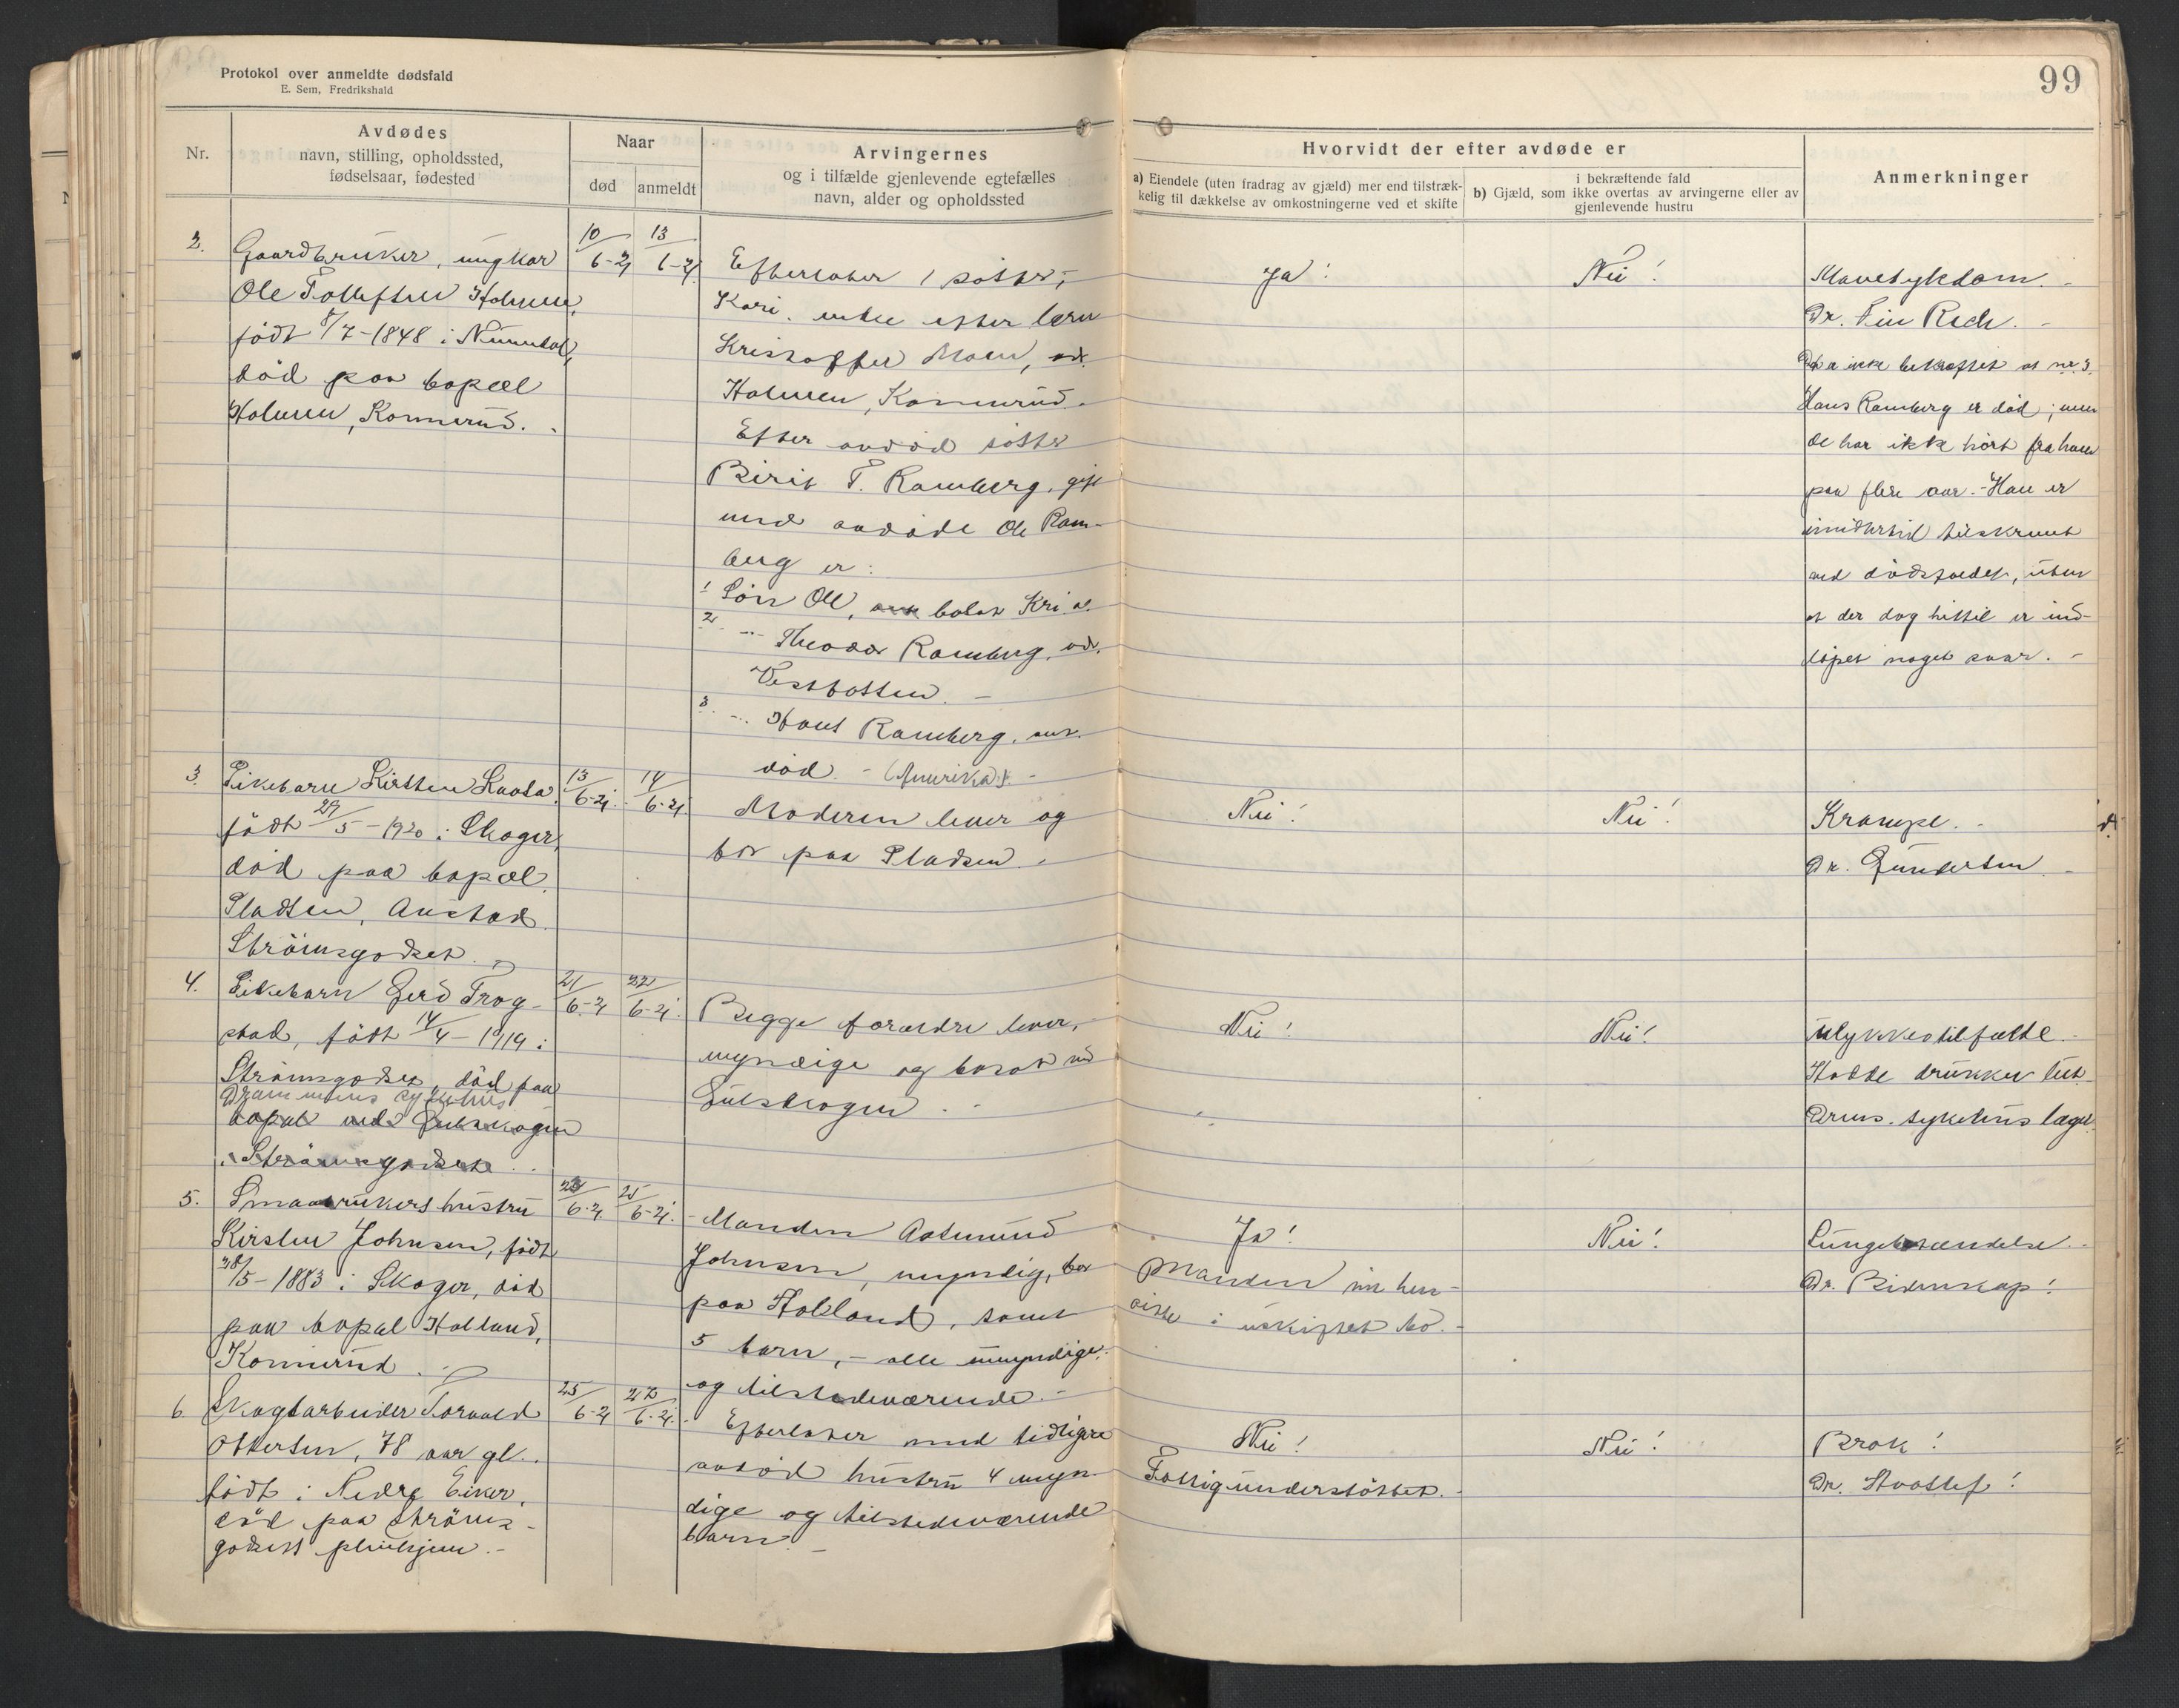 Protokol over anmeldte dødsfald
E. Sem, Fredrikshald
99
Nr.
Avdødes
navn, stilling, opholdssted,
fødselsaar, fødested
Naar
død
anmeldt
Arvingernes
og i tilfælde gjenlevende egtefælles
navn, alder og opholdssted
Hvorvidt der efter avdøde er
a) Eiendele (uten fradrag av gjæld) mer end tilstræk-
kelig til dækkelse av omkostningerne ved et skifte
i bekræftende fald
b) Gjæld, som ikke overtas av arvingerne eller av
gjenlevende hustru
Anmerkninger
2.
Gaardbruker, ungkar
Ole Tollefsen Holmen,
født 8/7-1848 i Numedal,
død paa bopæl
Holmen, Konnerud.
10/6-21
13/6-21
Efterlater 1 søster,
Kari, enke efter
Kristoffer Moen, adr.
Holmen, Konnerud.
Efter avdød søster
Birit T. Ramberg, gift
med avdøde Ole Ram-
berg er:
1 Søn Ole, bosat Kri.a.
2. -"- Theodor Ramberg, adr.
Vestfossen. -
3. -"- Hans Ramberg,
død. - (Amerika). -
Ja!
Nei!
Mavesykdom. -
Dr. Rich. -
ikke bekræftet at nr. 3.
Hans Ramberg er død; men
de har ikke hørt fra ham
paa flere aar. - Han er
imidlertid tilskrevet
ved dødsfaldet, uten
at der dog hittil er ind-
løpet noget svar. -
3
Pikebarn Kirsten
født 29/5-1920 i Skoger,
død paa bopæl
Pladsen, Austad
Strømsgodset.
13/6-21.
14/6-21
Moderen lever og
bor paa Pladsen.
Nei!
Nei!
Krampe. -
Dr. Gundersen. -
4.
Pikebarn Gerd Trog-
stad, født 14/4-1919 i
Strømsgodset, død paa
Drammens sykehus
bopæl ved Gulskogen
i Strømsgodset.
21/6-21
22/6-21.
Begge forældre lever,
myndige og bosat ved
Gulskogen.
Nei!
Nei!
Ulykkestilfælde. -
Hadde drukket lut.
Drms. sykehus læge.
5.
Smaabrukers hustru
Kirsten Johnsen, født
28/5-1883 i Skoger, død
paa bopæl Holland,
Konnerud.
23/6-21
25/6-21.
Manden Aasmund
Johnsen, myndig, bor
paa Holland, samt
5 barn, - alle umyndige,
og tilstedeværende. -
Ja!
Manden
i uskiftet bo. -
Nei!
Lungebetændelse. -
Dr. Bidenkap!
6.
Skogsarbeider Torvald
Ottersen, 78 aar gl.
født i Nedre Eiker,
død paa Strøms-
godsets pleiehjem. -
25/6-21
27/6-21.
Efterlater med tidligere
avdød hustru 4 myn-
dige og tilstedeværende
barn. -
Nei!
Fattigunderstøttet. -
Nei!
Brok!
Dr.